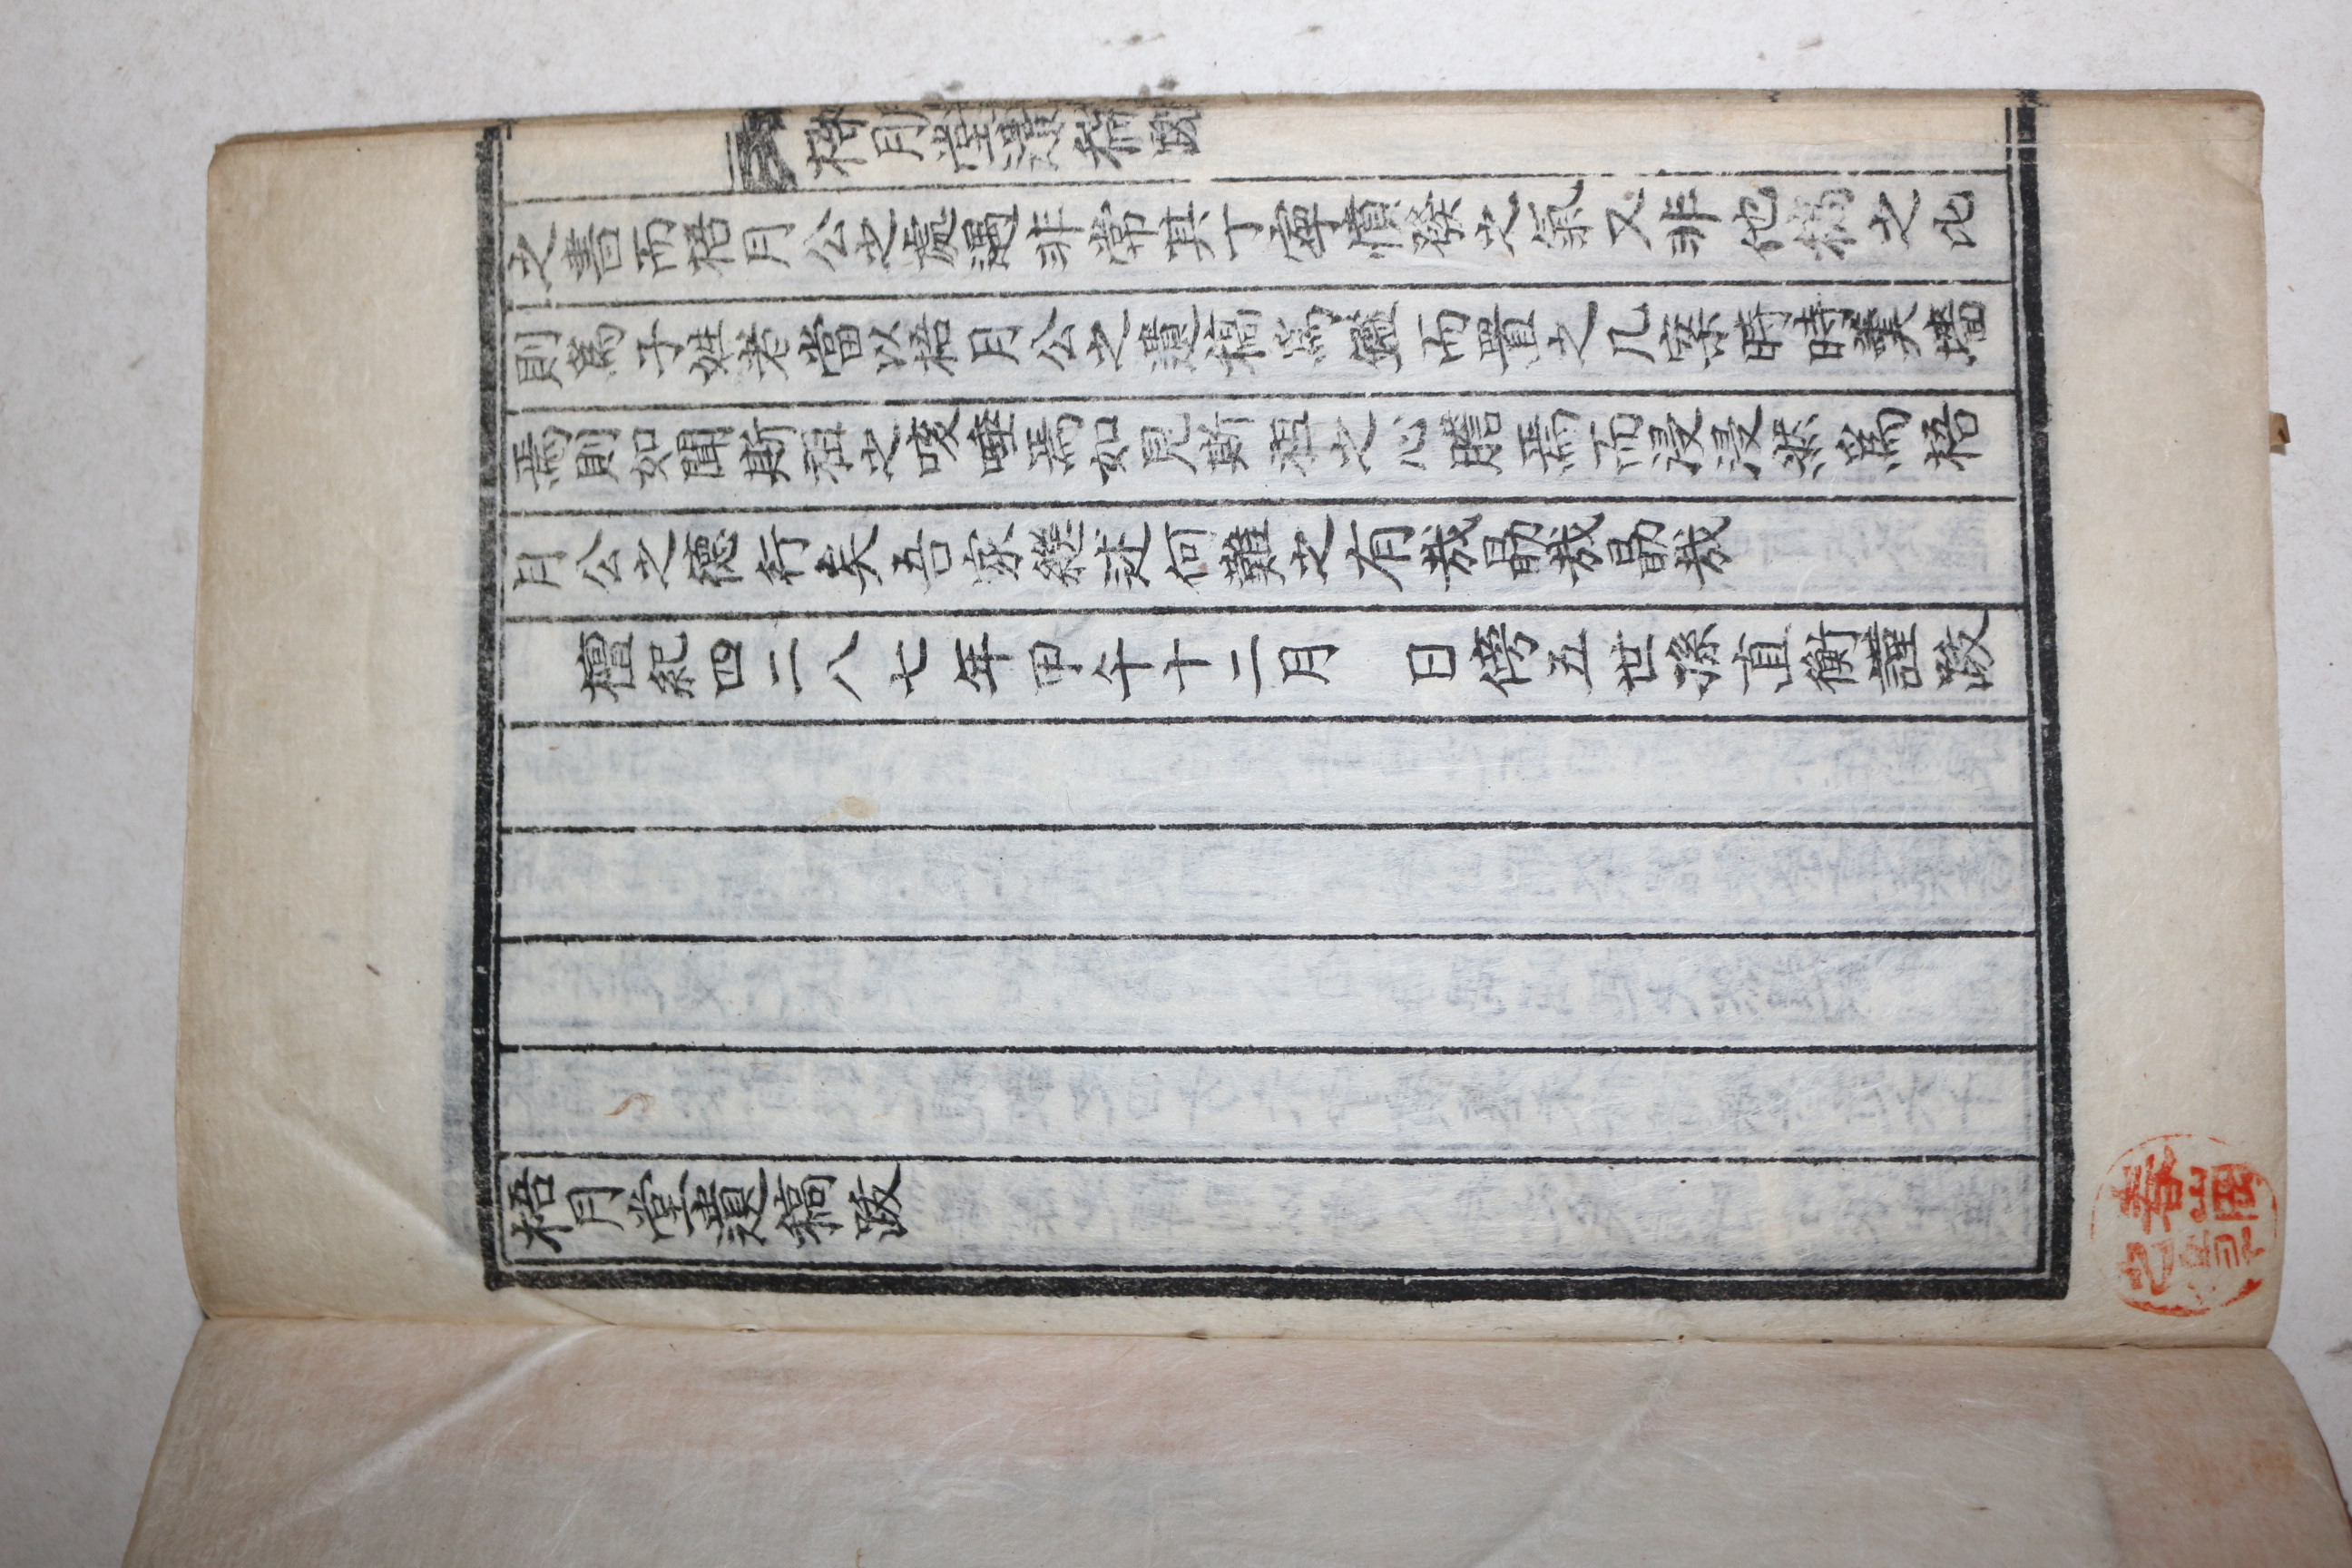 梧月堂遺稿跋
之書而梧月公之流遇非常其丁寧憤發之氣又非他稿之比
則爲子姓者當以梧月公之遺稿爲鑑而置之几案時時羹墻
焉則如聞斯祖之咳唾焉如見斯祖之心膽焉而浸浸然爲梧
月公之德行矣吾家繼述何難之有哉勖哉勖哉
檀紀四二八七年甲午十二月 日傍五世孫直衡謹跋
梧月堂遺稿跋